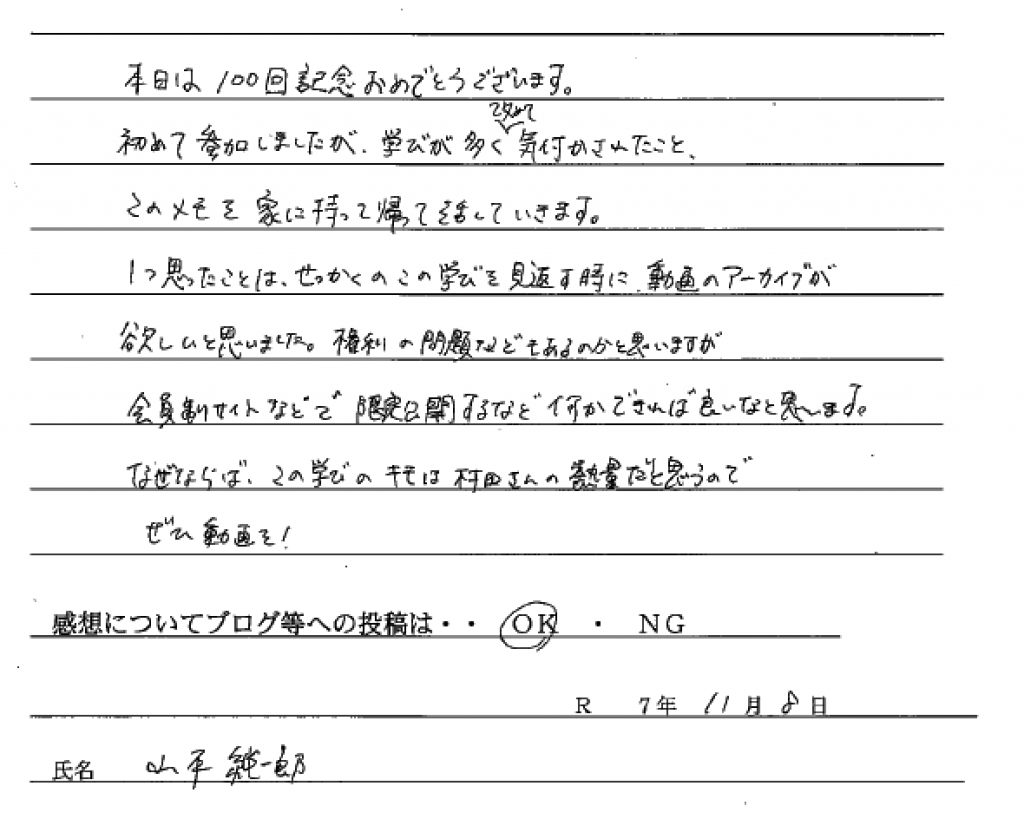 本日は100回記念おめでとうございます。
初めて参加しましたが、学びが多く改めて気付かされたこと、
このメモを家に持って帰って活していきます。
1つ思ったことは、せっかくのこの学びを見返す時に、動画のアーカイブが
欲しいと思いました。権利の問題などもあるのかと思いますが
会員制サイトなどで限定公開するなど何かできれば良いなと思います。
なぜならば、この学びのキモは村田さんの熱量だと思うので
ぜひ動画を!
感想についてブログ等への投稿は・・ OK ・ NG
R 7年 11月 8日
氏名 山平 純一郎